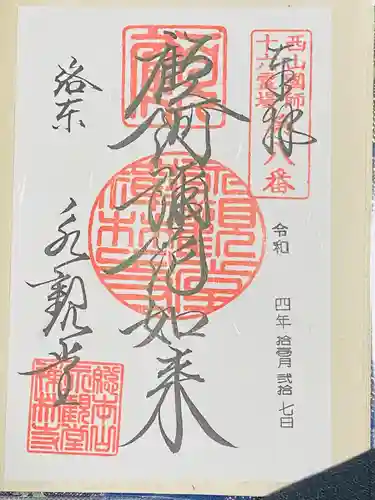 奉拝
西山国師
十六霊場
第八番
顧阿彌陀如来
洛東
永観堂
令和 四年 拾壱月 弐拾七日